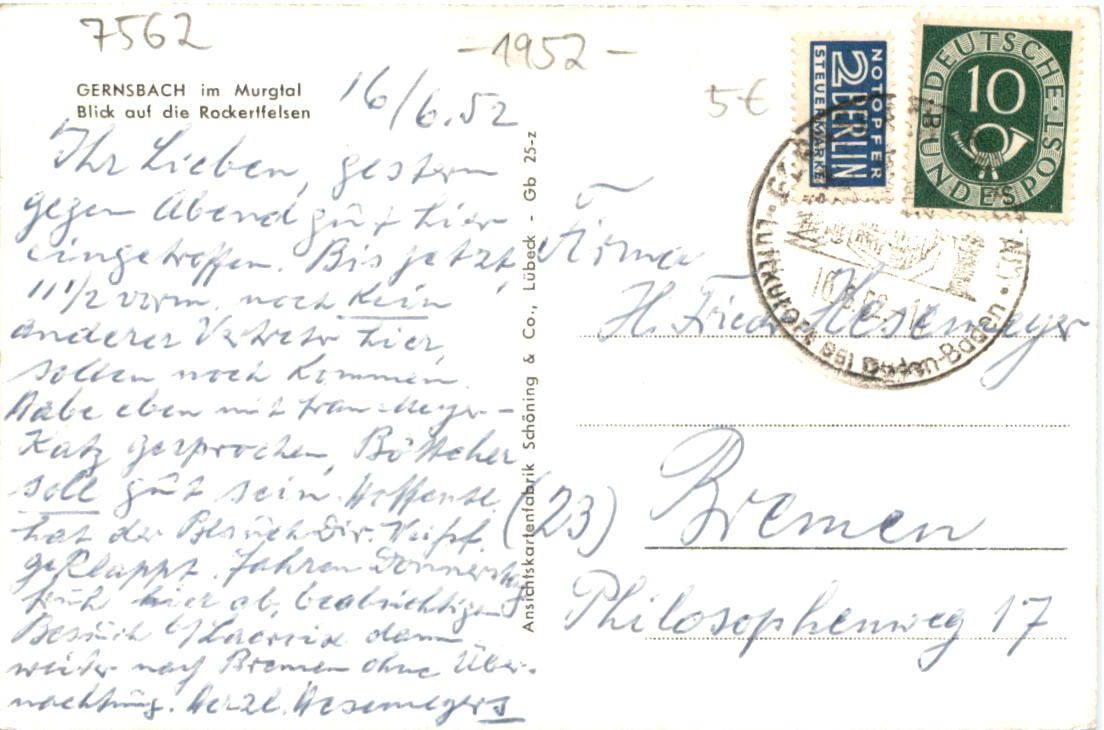 7562
-1952-
5€
GERNSBACH im Murgtal
Blick auf die Rockertfelsen
16/6.52
Ihr Lieben, gestern
gegen Abend gut hier
eingetroffen. Bis jetzt,
11 1/2 vorm, noch kein
anderer Vertreter hier,
sollen noch kommen.
Habe eben mit Frau Meyer-
Katz gesprochen, Böttcher
soll gut sein. Hoffentl.
hat der Besuch Dir.
geklappt. Fahren Donnerstag
früh hier ab, beabsichtigen
Besuch b/ Lacroix dann
weiter nach Bremen ohne Über-
nachtung. Herzl. Hesemeyers
Ansichtskartenfabrik Schöning & Co., Lübeck - Gb 25-z
NOTOPFER
2 BERLIN
STEUERMARKE
DEUTSCHE BUNDESPOST
10
LUFTKURORT BEI Baden-Baden
Firma
H. Friedr. Hesemeyer
(23) Bremen
Philosophenweg 17